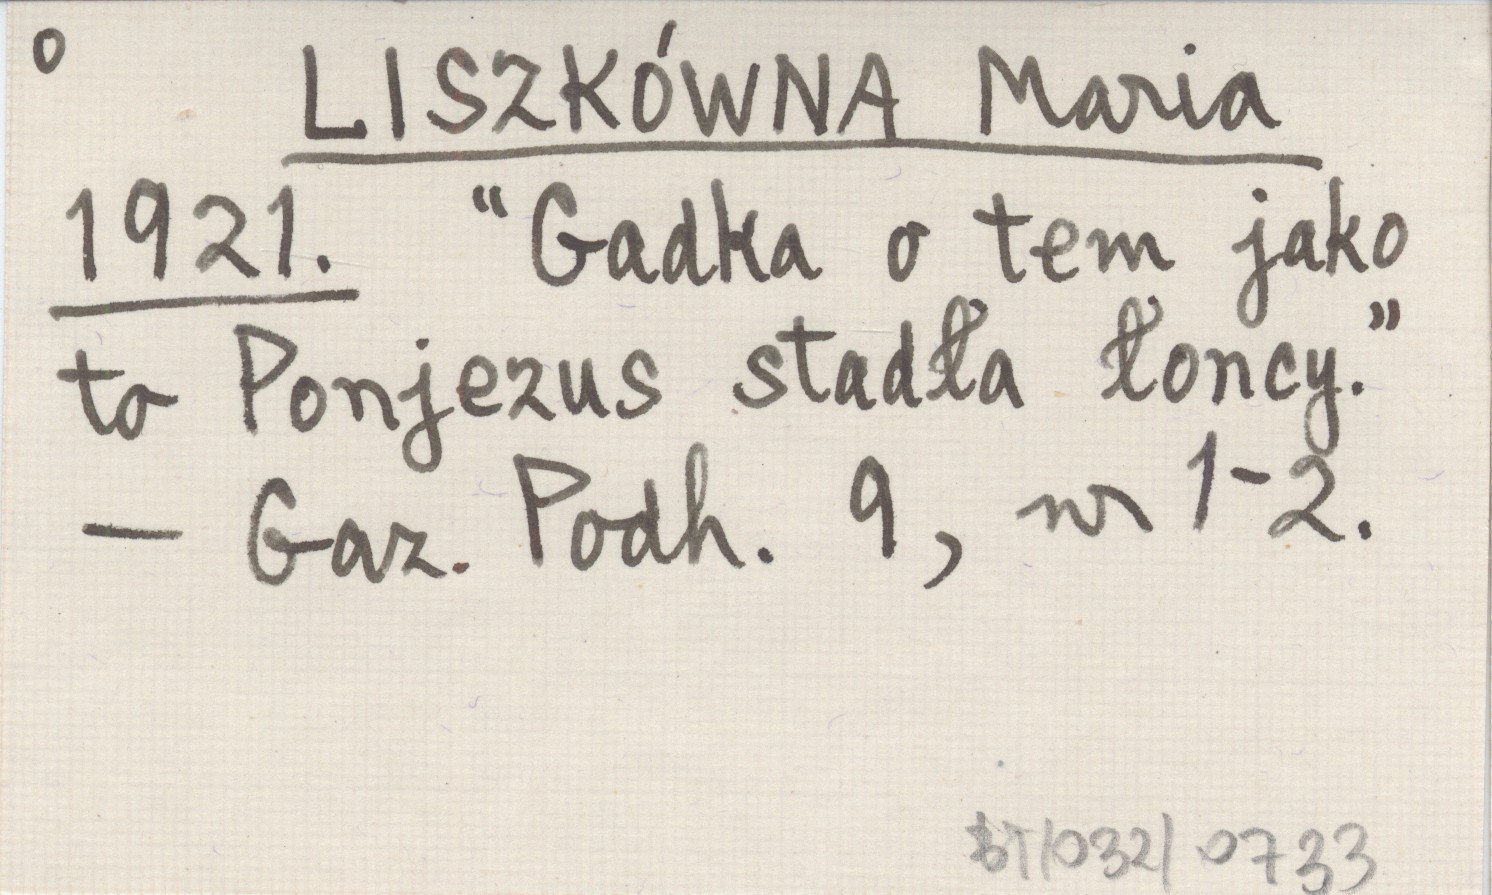 o
LISZKÓWNA Maria
1921. "Gadka o tem jako
to Ponjezus stadła łoncy."
— Gaz. Podh. 9, nr 1-2.
BT/032/0733